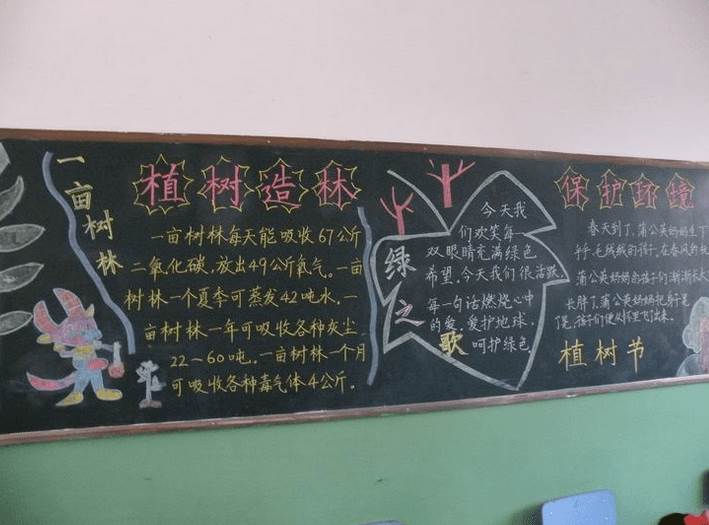 一亩树林
植树造林
一亩树林每天能吸收67公斤
二氧化碳,放出49公斤氧气。一亩
树林一个夏季可蒸发42吨水,一
亩树林一年可吸收各种灰尘
22—60吨。一亩树林一个月
可吸收各种毒气体4公斤。
绿之歌
今天我
们欢笑每一
双眼睛充满绿色
希望。今天我们很活跃,
每一句话燃烧心中
的爱,爱护地球,
呵护绿色
保护环境
春天到了,蒲公英妈妈生下
毛绒绒的孩子。在春风的
蒲公英妈妈的孩子们渐渐长大
长胖了,蒲公英妈妈
了,孩子们便从怀里飞出来。
植树节